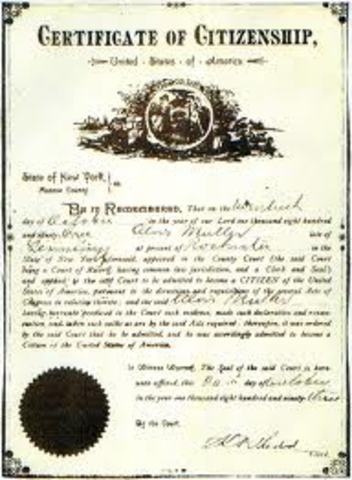 CERTIFICATE OF CITIZENSHIP,
United States of America
State of New York,
Monroe County } ss.
BE IT REMEMBERED, That on the
day of October in the year of our Lord one thousand eight hundred
and ninety three Alois Muller late of
Germany at present of Rochester in the
State of New York aforesaid, appeared in the County Court (the said Court
being a Court of Record, having common law jurisdiction, and a Clerk and Seal)
and applied to the said Court to be admitted to become a CITIZEN of the United
States of America, pursuant to the directions and regulations of the several Acts of
Congress in relation thereto; and the said Alois Muller
having thereunto produced to the Court such evidence, made such declaration and renun-
ciation, and taken such oaths as are by the said Acts required; thereupon, it was ordered
by the said Court that he be admitted, and he was accordingly admitted to become a
Citizen of the United States of America.
In Witness Whereof, The Seal of the said Court is here-
unto affixed, this day of October
in the year one thousand eight hundred and ninety-three
By the Court.
Clerk.